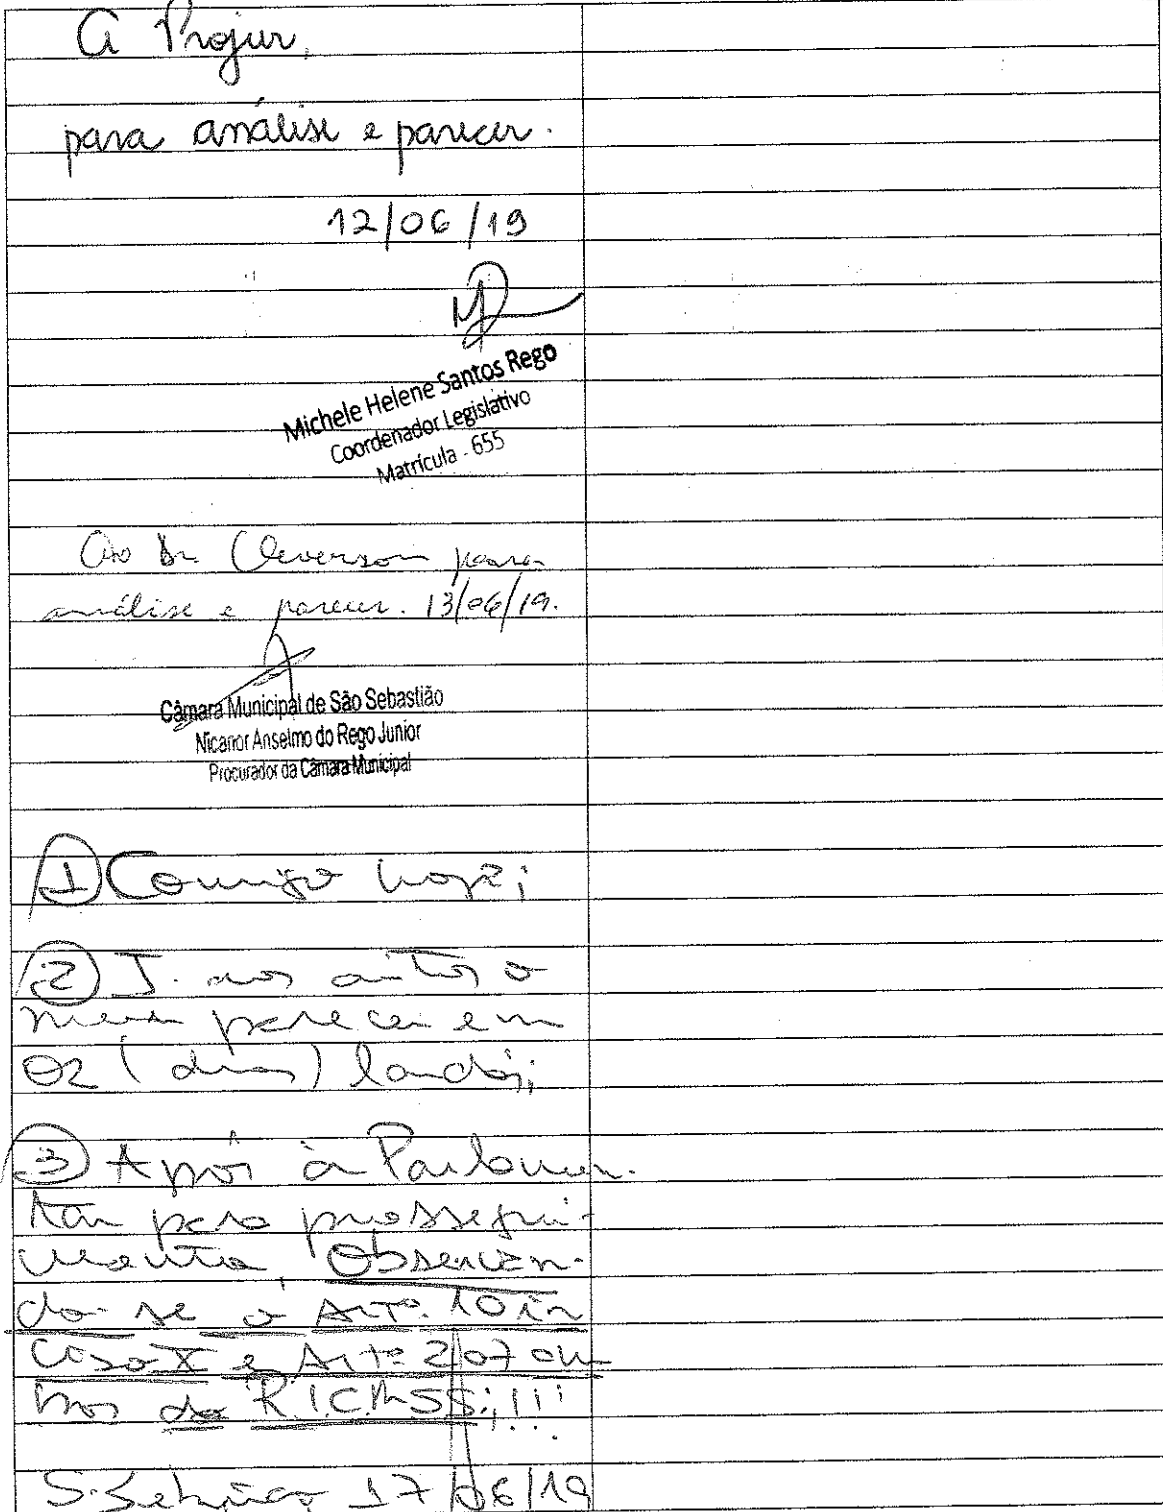 A Projur,
para análise e parecer.
12/06/19
Michele Helene Santos Rego
Coordenador Legislativo
Matrícula - 655
Ao Dr. Cleverson para
análise e parecer. 13/06/19.
Câmara Municipal de São Sebastião
Nicanor Anselmo do Rego Junior
Procurador da Câmara Municipal
1 Comigo hoje;
2 J. nos autos o
meu parecer em
02 (duas) laudas;
3 Após à Parlamen-
tar para prossegui-
mento, Observan-
do-se o Artº. 10 in
ciso X e Artº 207 ou
tros do R.I.C.M.S.S;!!!
S. Sebastião, 17/06/19